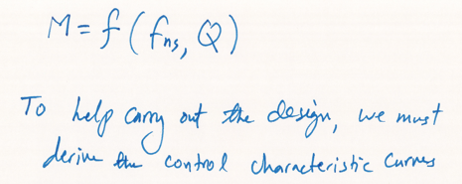 M = f ( fns, Q )
To help carry out the design, we must
derive the control characteristic curves